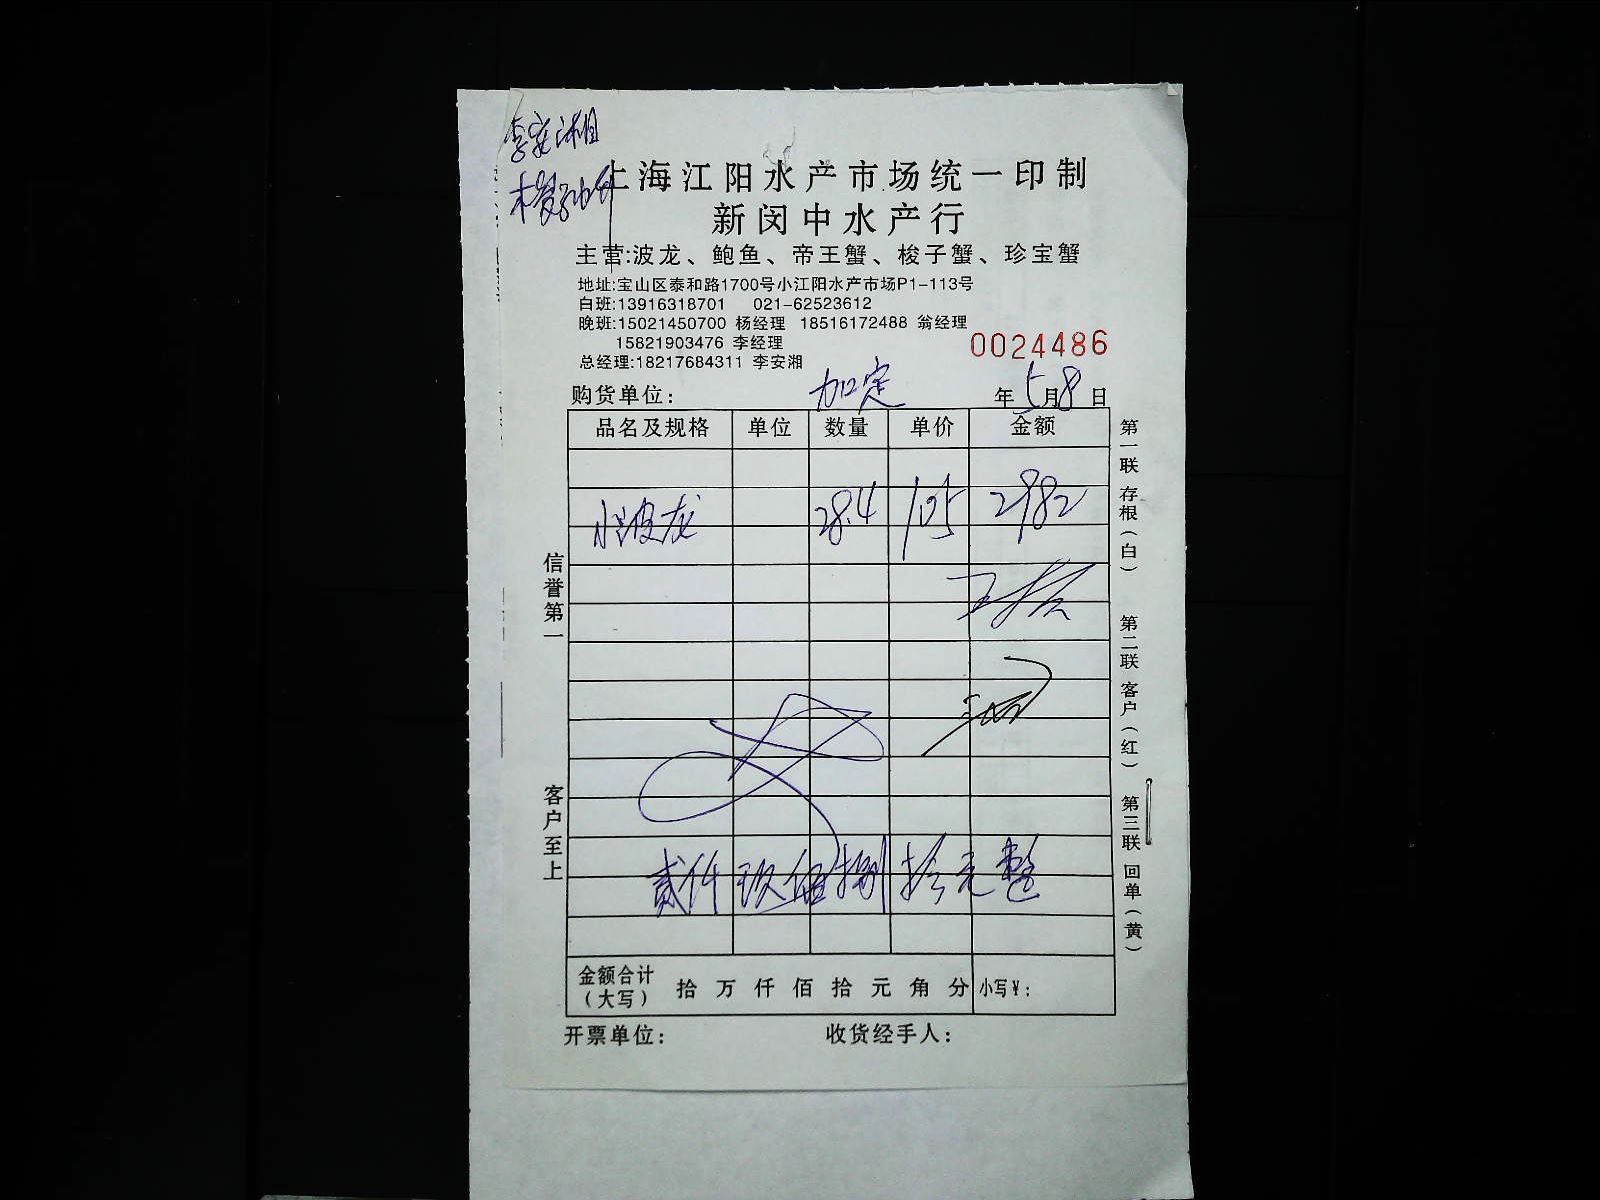 李安湘
上海江阳水产市场统一印制
新闵中水产行
主营:波龙、鲍鱼、帝王蟹、梭子蟹、珍宝蟹
地址:宝山区泰和路1700号小江阳水产市场P1-113号
白班:13916318701 021-62523612
晚班:15021450700 杨经理 18516172488 翁经理
15821903476 李经理
总经理:18217684311 李安湘
0024486
购货单位: 加定 年5月8日
品名及规格 单位 数量 单价 金额
小波龙 28.4 105 2982
贰仟玖佰捌拾元整
金额合计(大写) 拾 万 仟 佰 拾 元 角 分 小写¥:
开票单位: 收货经手人:
信誉第一
客户至上
第一联 存根(白)
第二联 客户(红)
第三联 回单(黄)